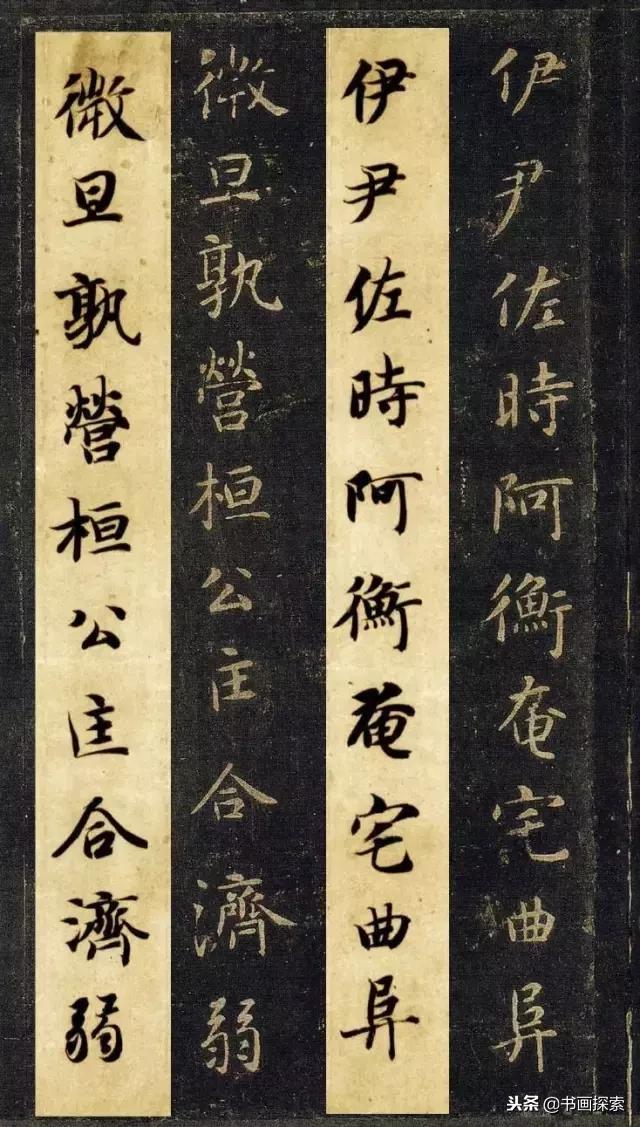 伊尹佐時阿衡奄宅曲阜
伊尹佐時阿衡奄宅曲阜
微旦孰營桓公匡合濟弱
微旦孰營桓公匡合濟弱
头条 @书画探索